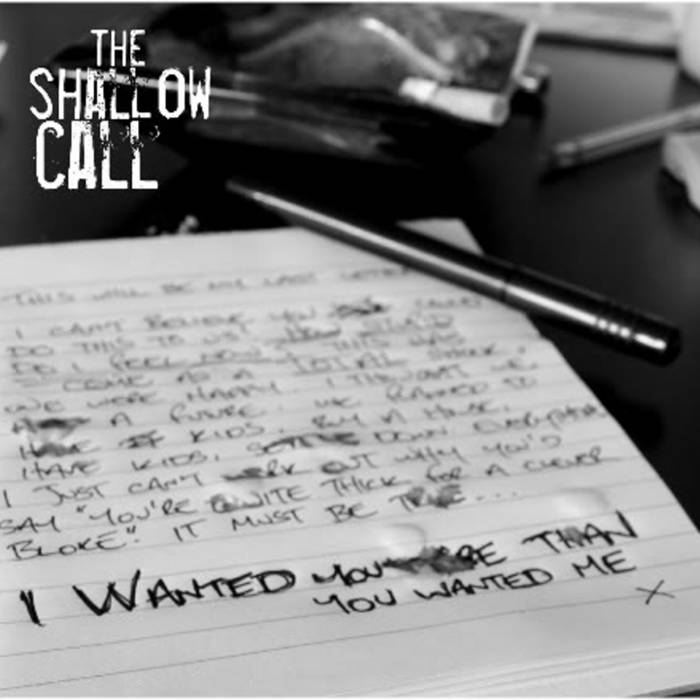 THE
SHALLOW
CALL
THIS WILL BE MY LAST LETTER
I CAN'T BELIEVE YOU COULD
DO THIS TO US. HOW STUPID
DO I FEEL NOW. THIS HAS
COME AS A TOTAL SHOCK.
WE WERE HAPPY. I THOUGHT WE
HAD A FUTURE. WE PLANNED TO
HAVE KIDS, BUY A HOUSE,
HAVE KIDS, SETTLE DOWN. EVERYTHING
I JUST CAN'T WORK OUT WHY YOU'D
SAY "YOU'RE QUITE THICK FOR A CLEVER
BLOKE". IT MUST BE TRUE...
I WANTED YOU MORE THAN
YOU WANTED ME
X